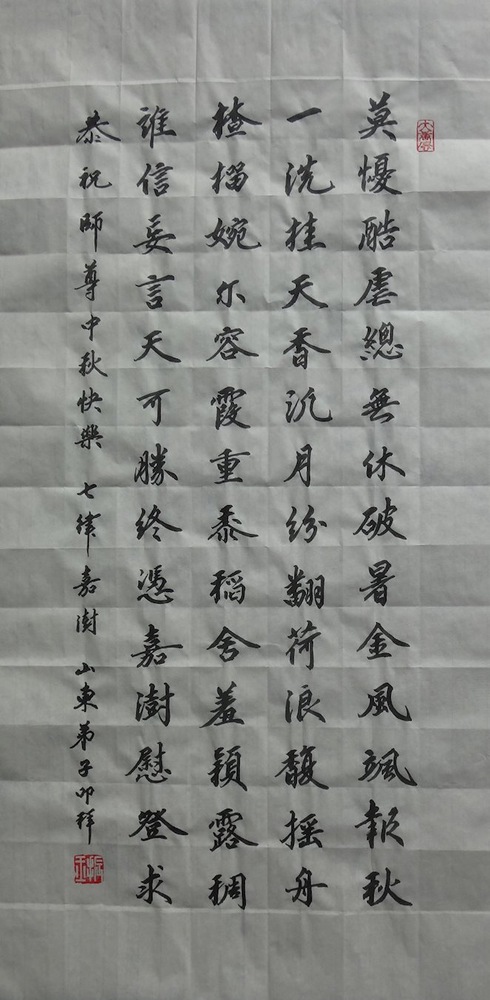 莫憂酷虐總無休破暑金風颯報秋
一洗挂天香沉月紛翻荷浪馥搖舟
楂摺婉尔容霞重黍稻含羞穎露稠
誰信妄言天可勝終憑嘉澍慰登求
恭祝師尊中秋快樂 七律嘉澍 山東弟子叩拜